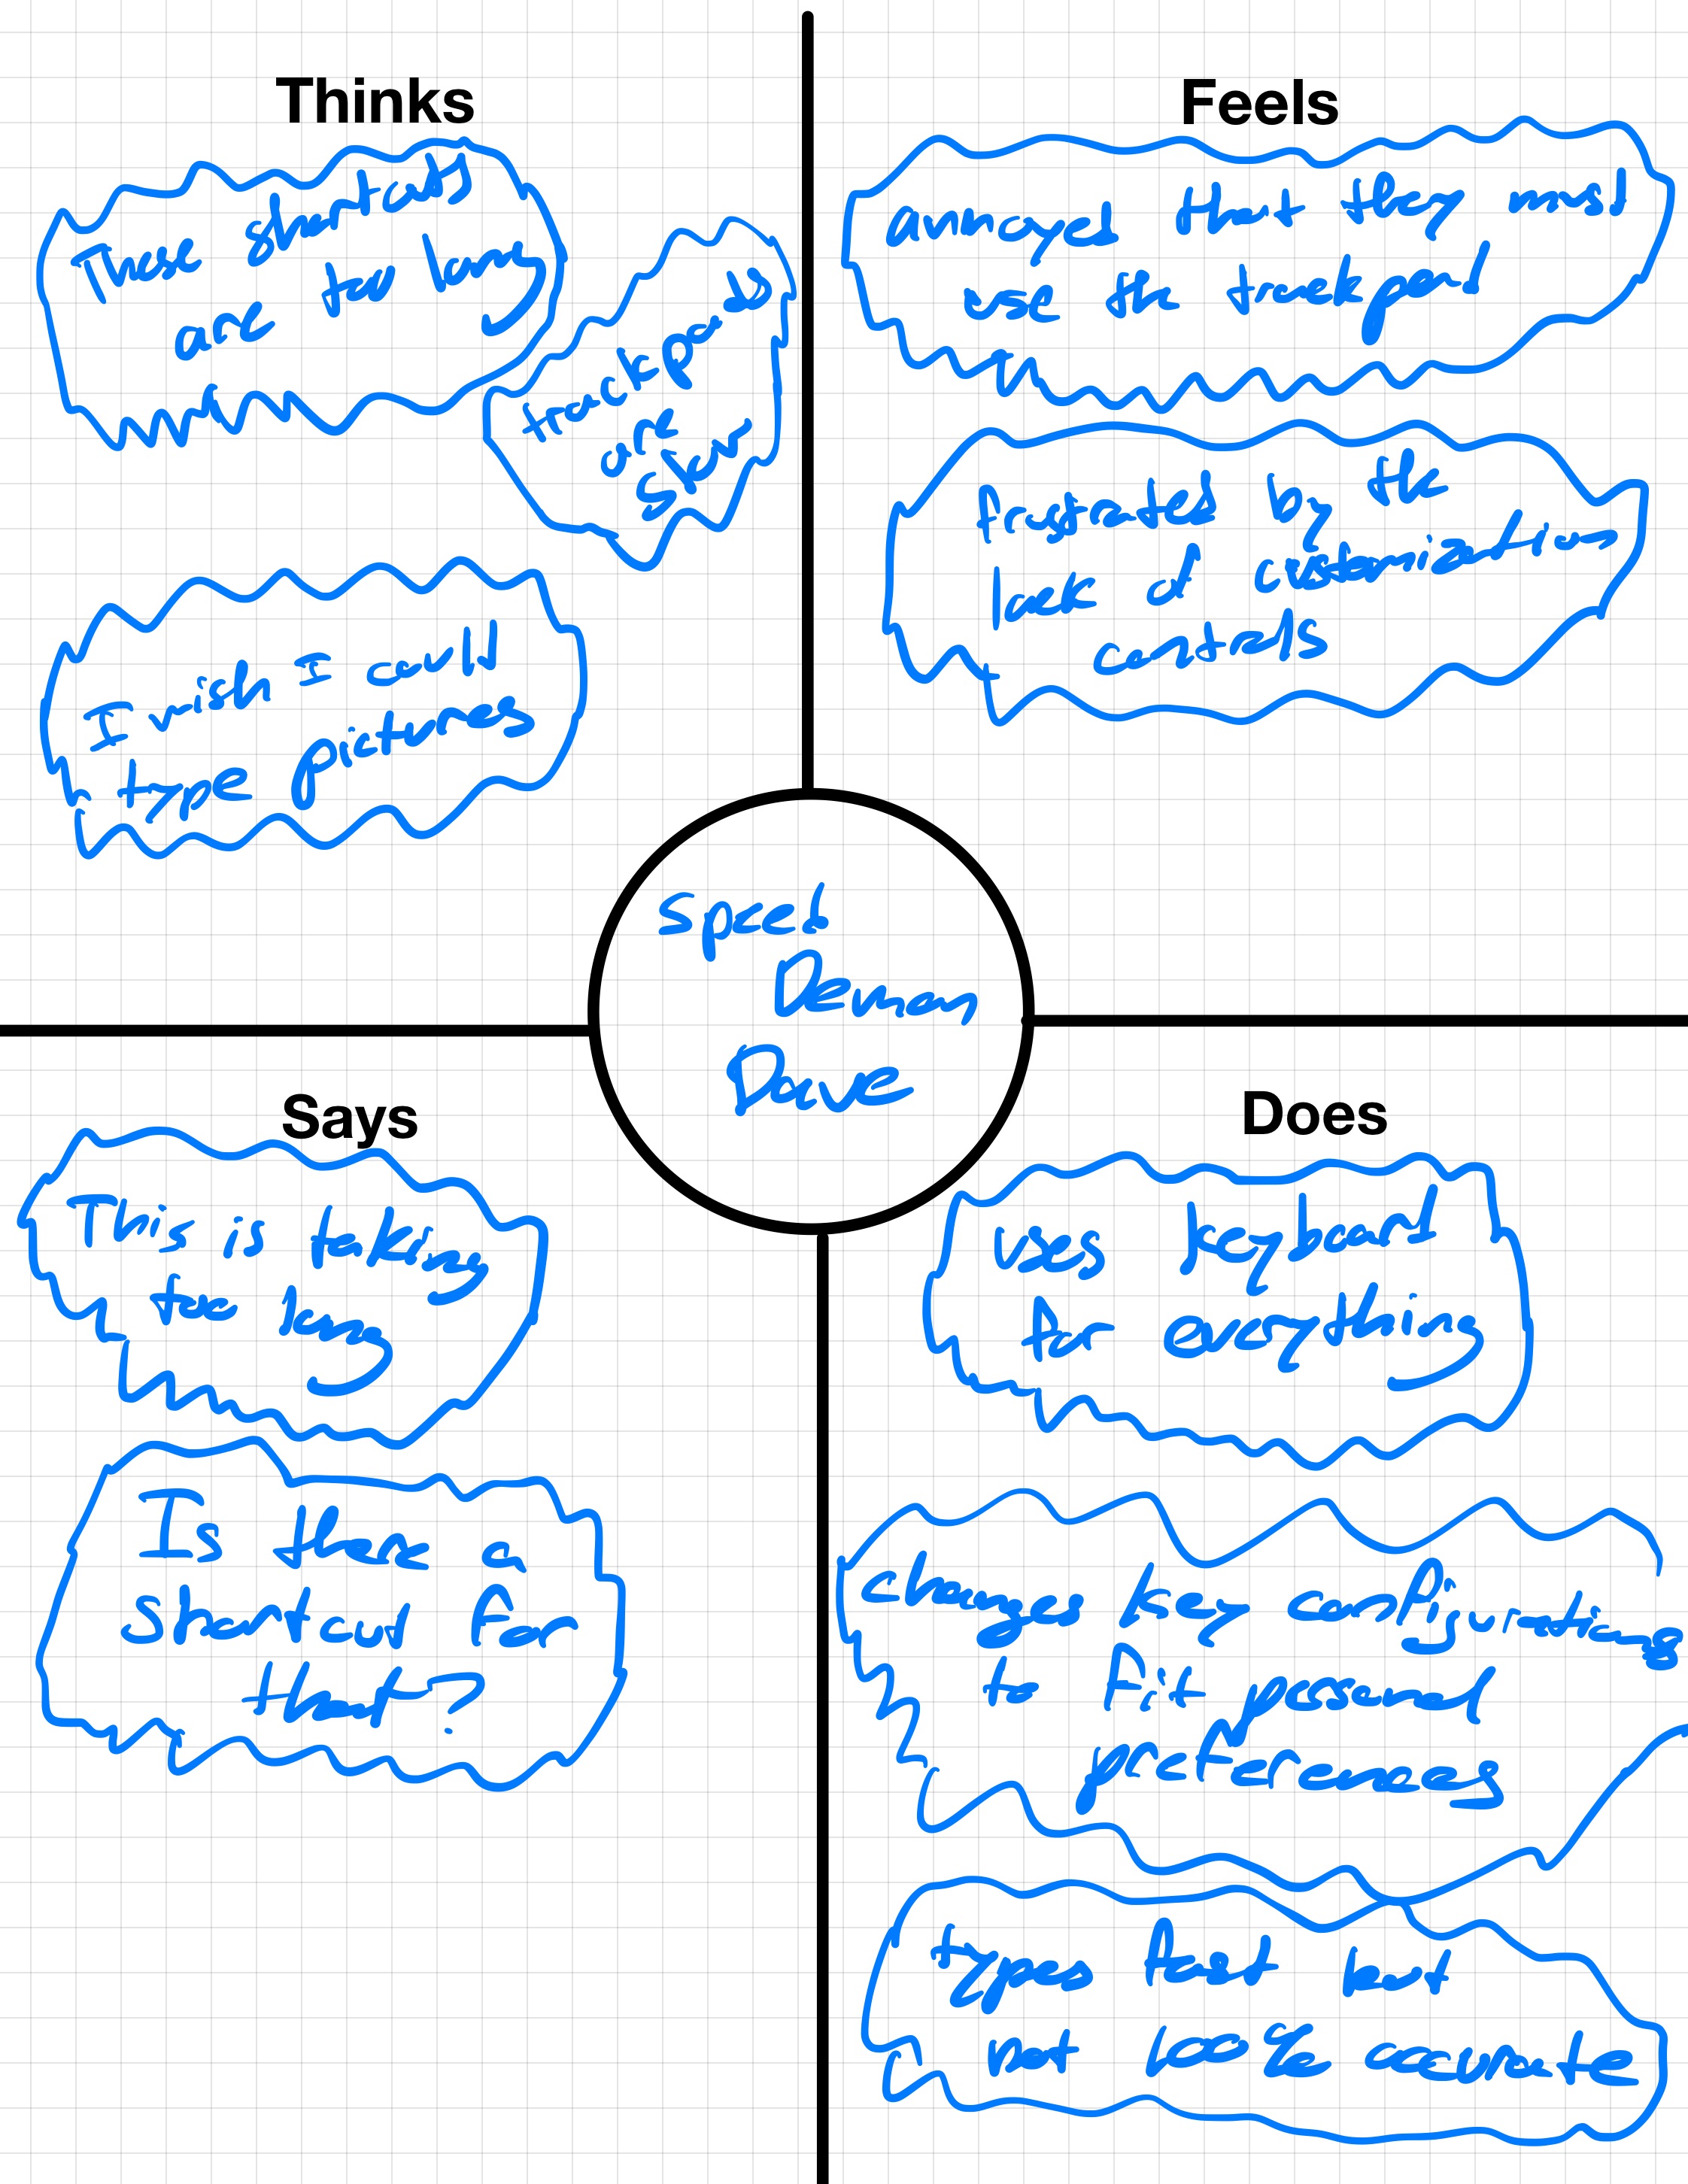 Thinks
These shortcuts
are too long
trackpads
are
slow
I wish I could
type pictures
Feels
annoyed that they must
use the trackpad
frustrated by the
lack of customization
controls
Speed
Demon
Dave
Says
This is taking
too long
Is there a
shortcut for
that?
Does
uses keyboard
for everything
changes key configurations
to fit personal
preferences
types fast but
not 100% accurate